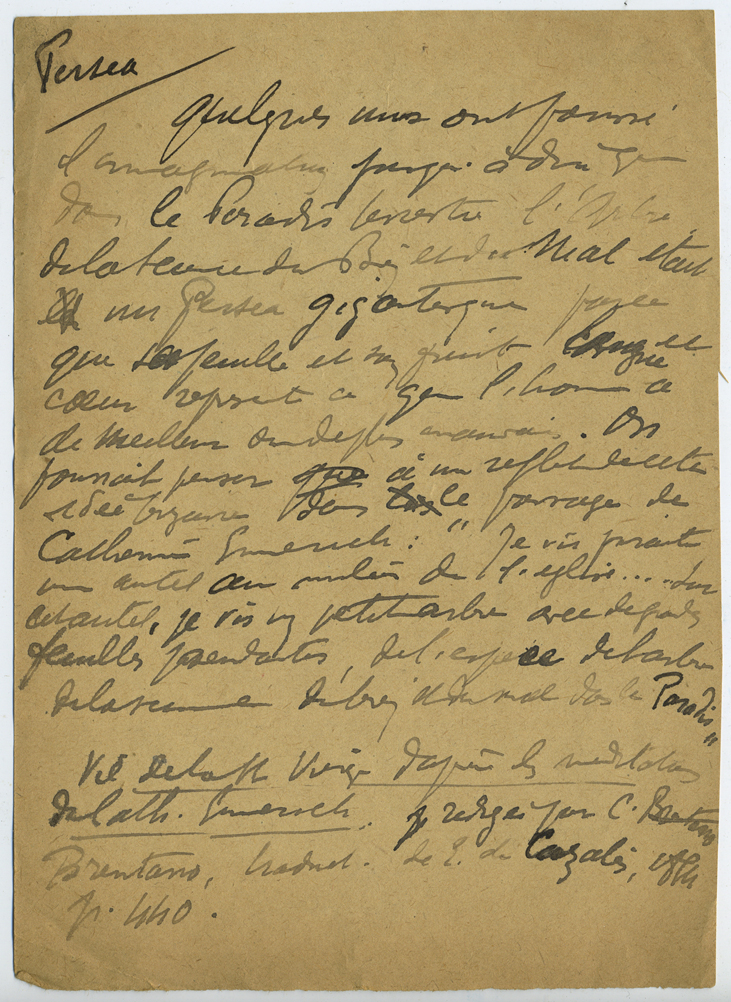 Persea
Quelques uns ont poussé
l'imagination jusqu'à dire que
dans le Paradis terrestre l'Arbre
de la science du Bien et du Mal était
un Persea gigantesque parce
que sa feuille et son fruit langue et
cœur représente ce que l'homme a
de meilleur ou de plus mauvais. On
pourrait penser que à un reflet de cette
idée bizarre dans le passage de
Catherine Emmerich : " Je vis ensuite
un autel au milieu de l'église.... Sur
cet autel, je vis un petit arbre avec de grandes
feuilles pendantes, de l'espèce de l'arbre
de la science du bien et du mal dans le Paradis"
Vie de la Ste Vierge d'après les méditations
de Cath. Emmerich. rédigés par C. Bretano
Brentano, traduct. de E. de Cazalès,
p. 440.